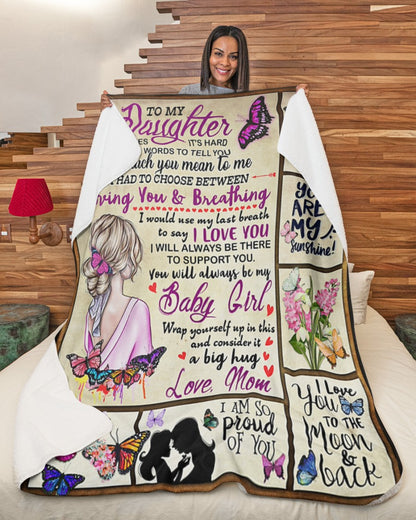 TO MY
Daughter
ES IT'S HARD
WORDS TO TELL YOU
ch you mean to me
HAD TO CHOOSE BETWEEN
ving You & Breathing
I would use my last breath
to say I LOVE YOU
I WILL ALWAYS BE THERE
TO SUPPORT YOU.
You will always be my
Baby Girl
Wrap yourself up in this
and consider it
a big hug
Love, Mom
YOU
ARE
MY
Sunshine!
I AM SO
proud
OF YOU
I Love
You
TO THE
Moon
&
back